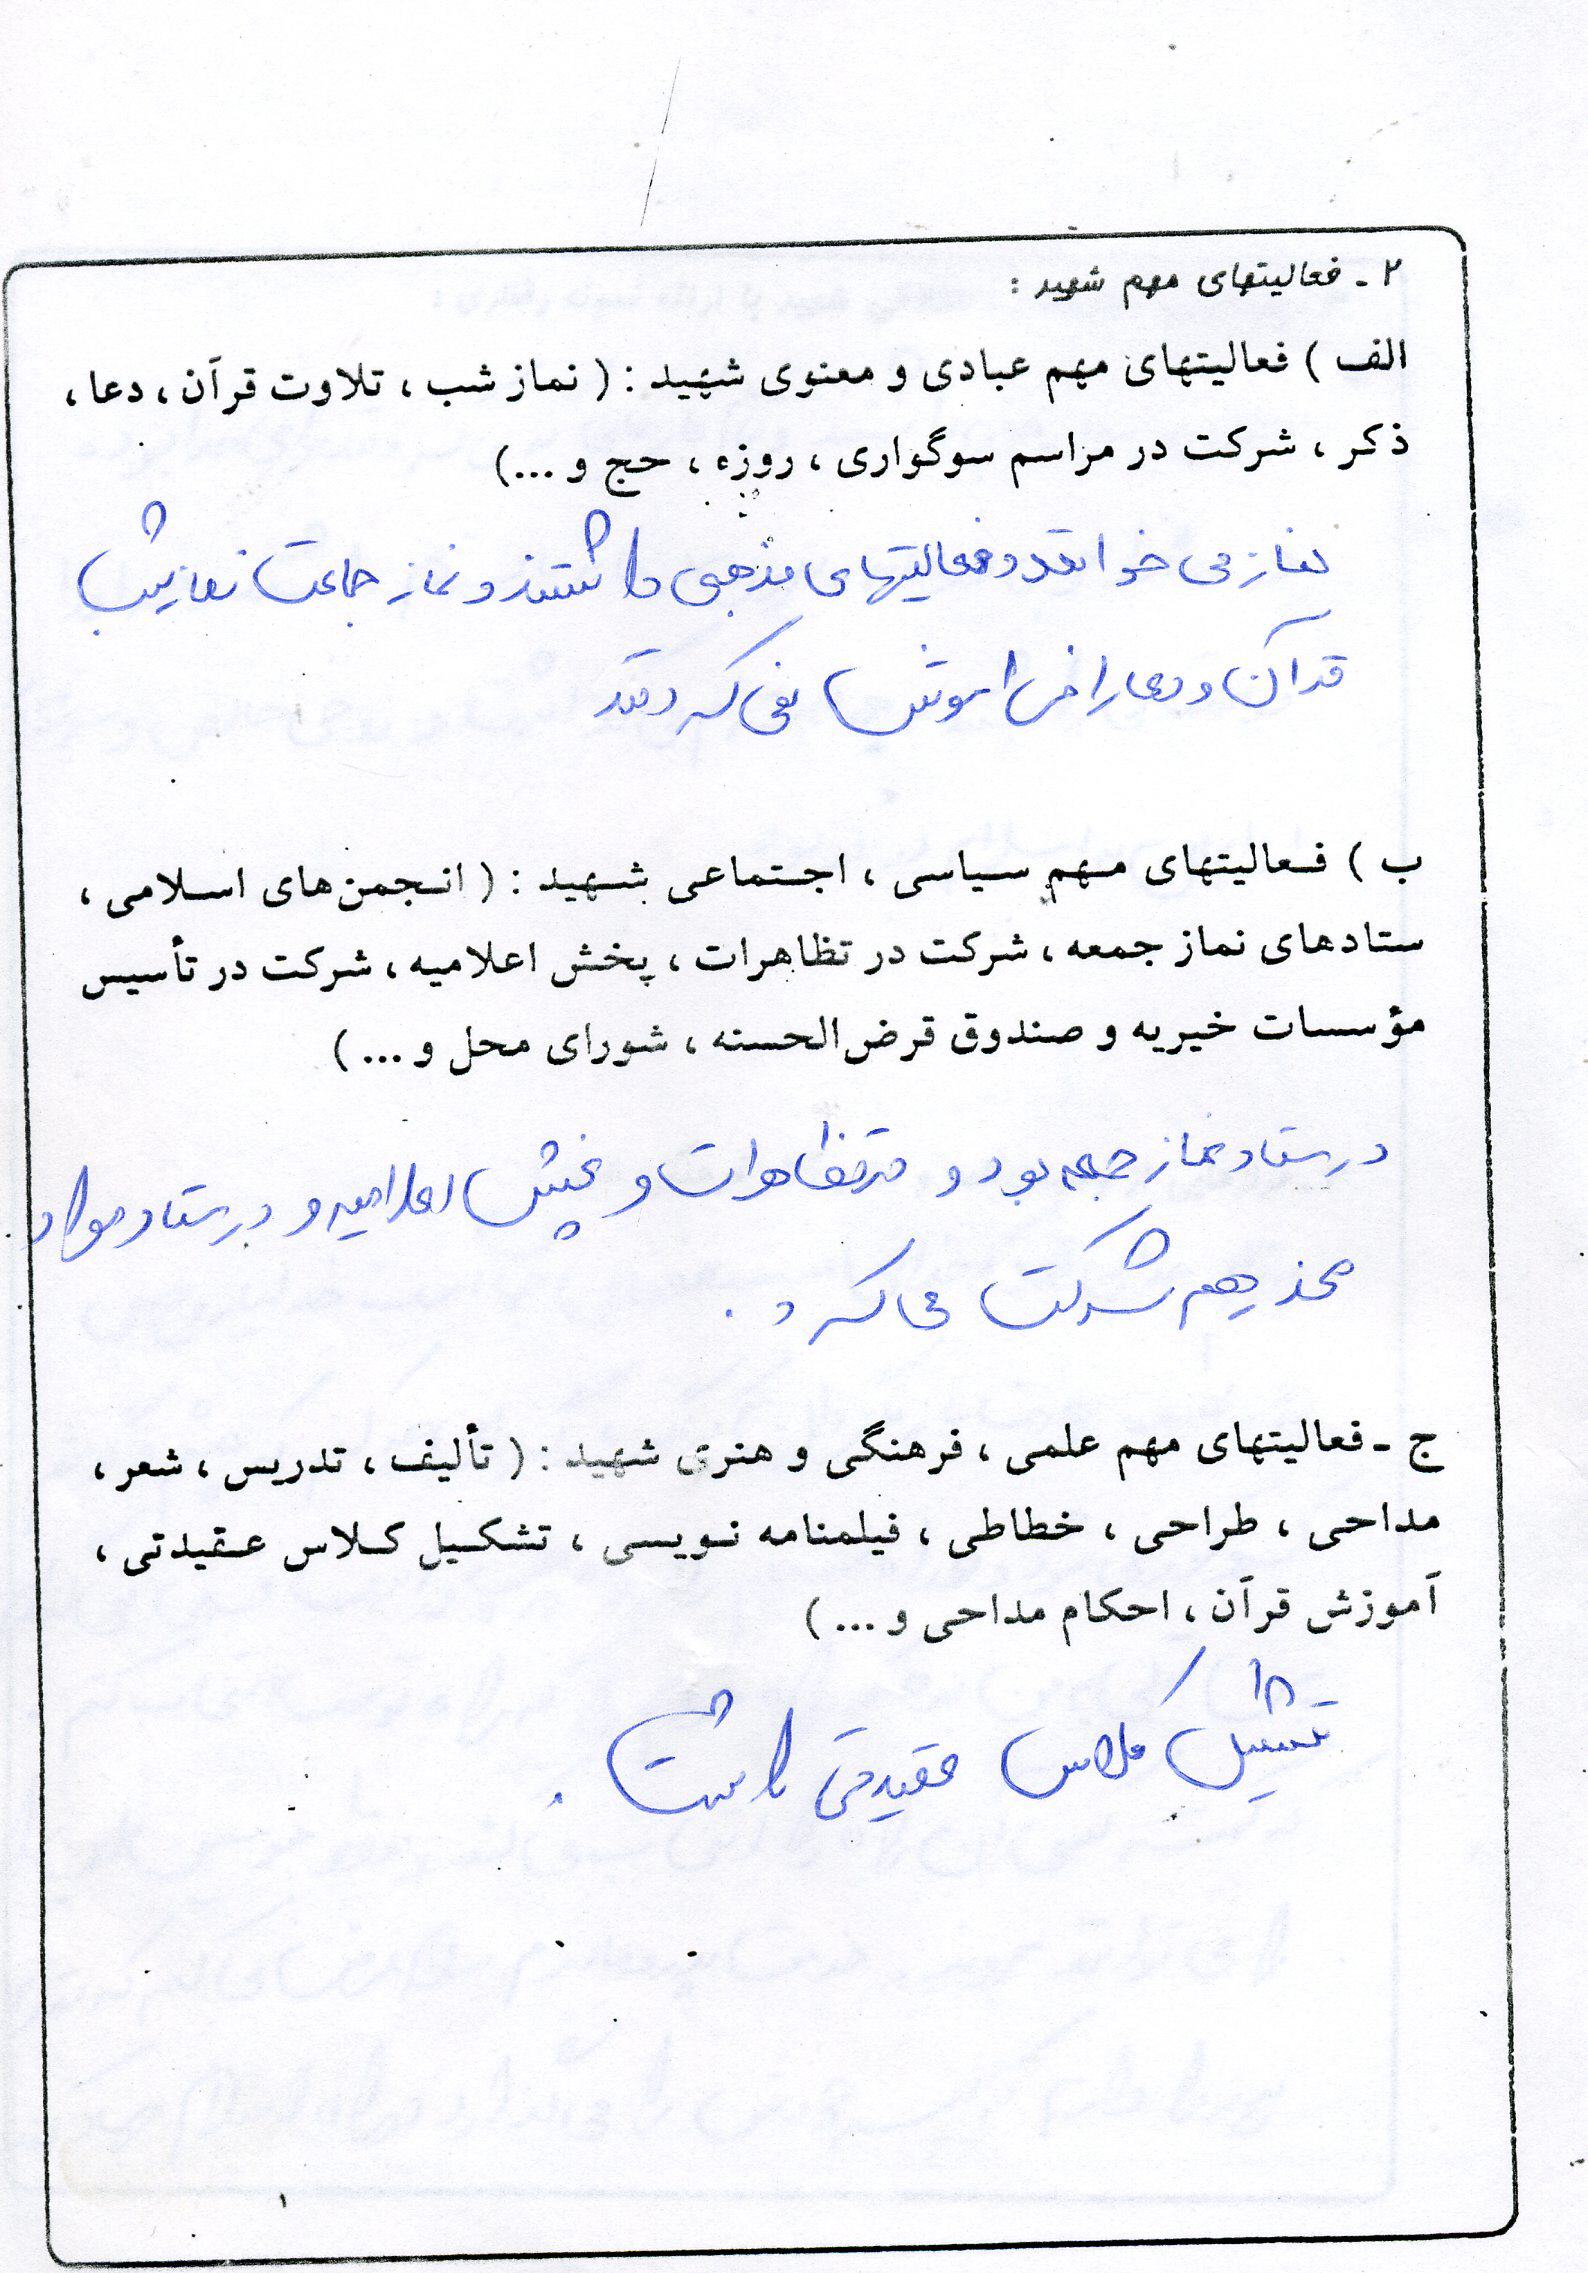 ۲ ـ فعالیتهای مهم شهید :
الف ) فعالیتهای مهم عبادی و معنوی شهید : ( نماز شب ، تلاوت قرآن ، دعا ،
ذکر ، شرکت در مراسم سوگواری ، روزه ، حج و ...)
نماز می خواندند و فعالیتهای مذهبی داشتند و نماز جماعت نماز شب
قرآن و دعا را فراموش نمی کردند
ب ) فعالیتهای مهم سیاسی ، اجتماعی شهید : ( انجمن‌های اسلامی ،
ستادهای نماز جمعه ، شرکت در تظاهرات ، پخش اعلامیه ، شرکت در تأسیس
مؤسسات خیریه و صندوق قرض‌الحسنه ، شورای محل و ... )
در ستاد نماز جمعه بود و در تظاهرات و پخش اعلامیه و در ستاد مواد
مخدر هم شرکت می کرد .
ج ـ فعالیتهای مهم علمی ، فرهنگی و هنری شهید : ( تألیف ، تدریس ، شعر ،
مداحی ، طراحی ، خطاطی ، فیلمنامه نویسی ، تشکیل کلاس عقیدتی ،
آموزش قرآن ، احکام مداحی و ... )
تشکیل کلاس عقیدتی داشت .
۱